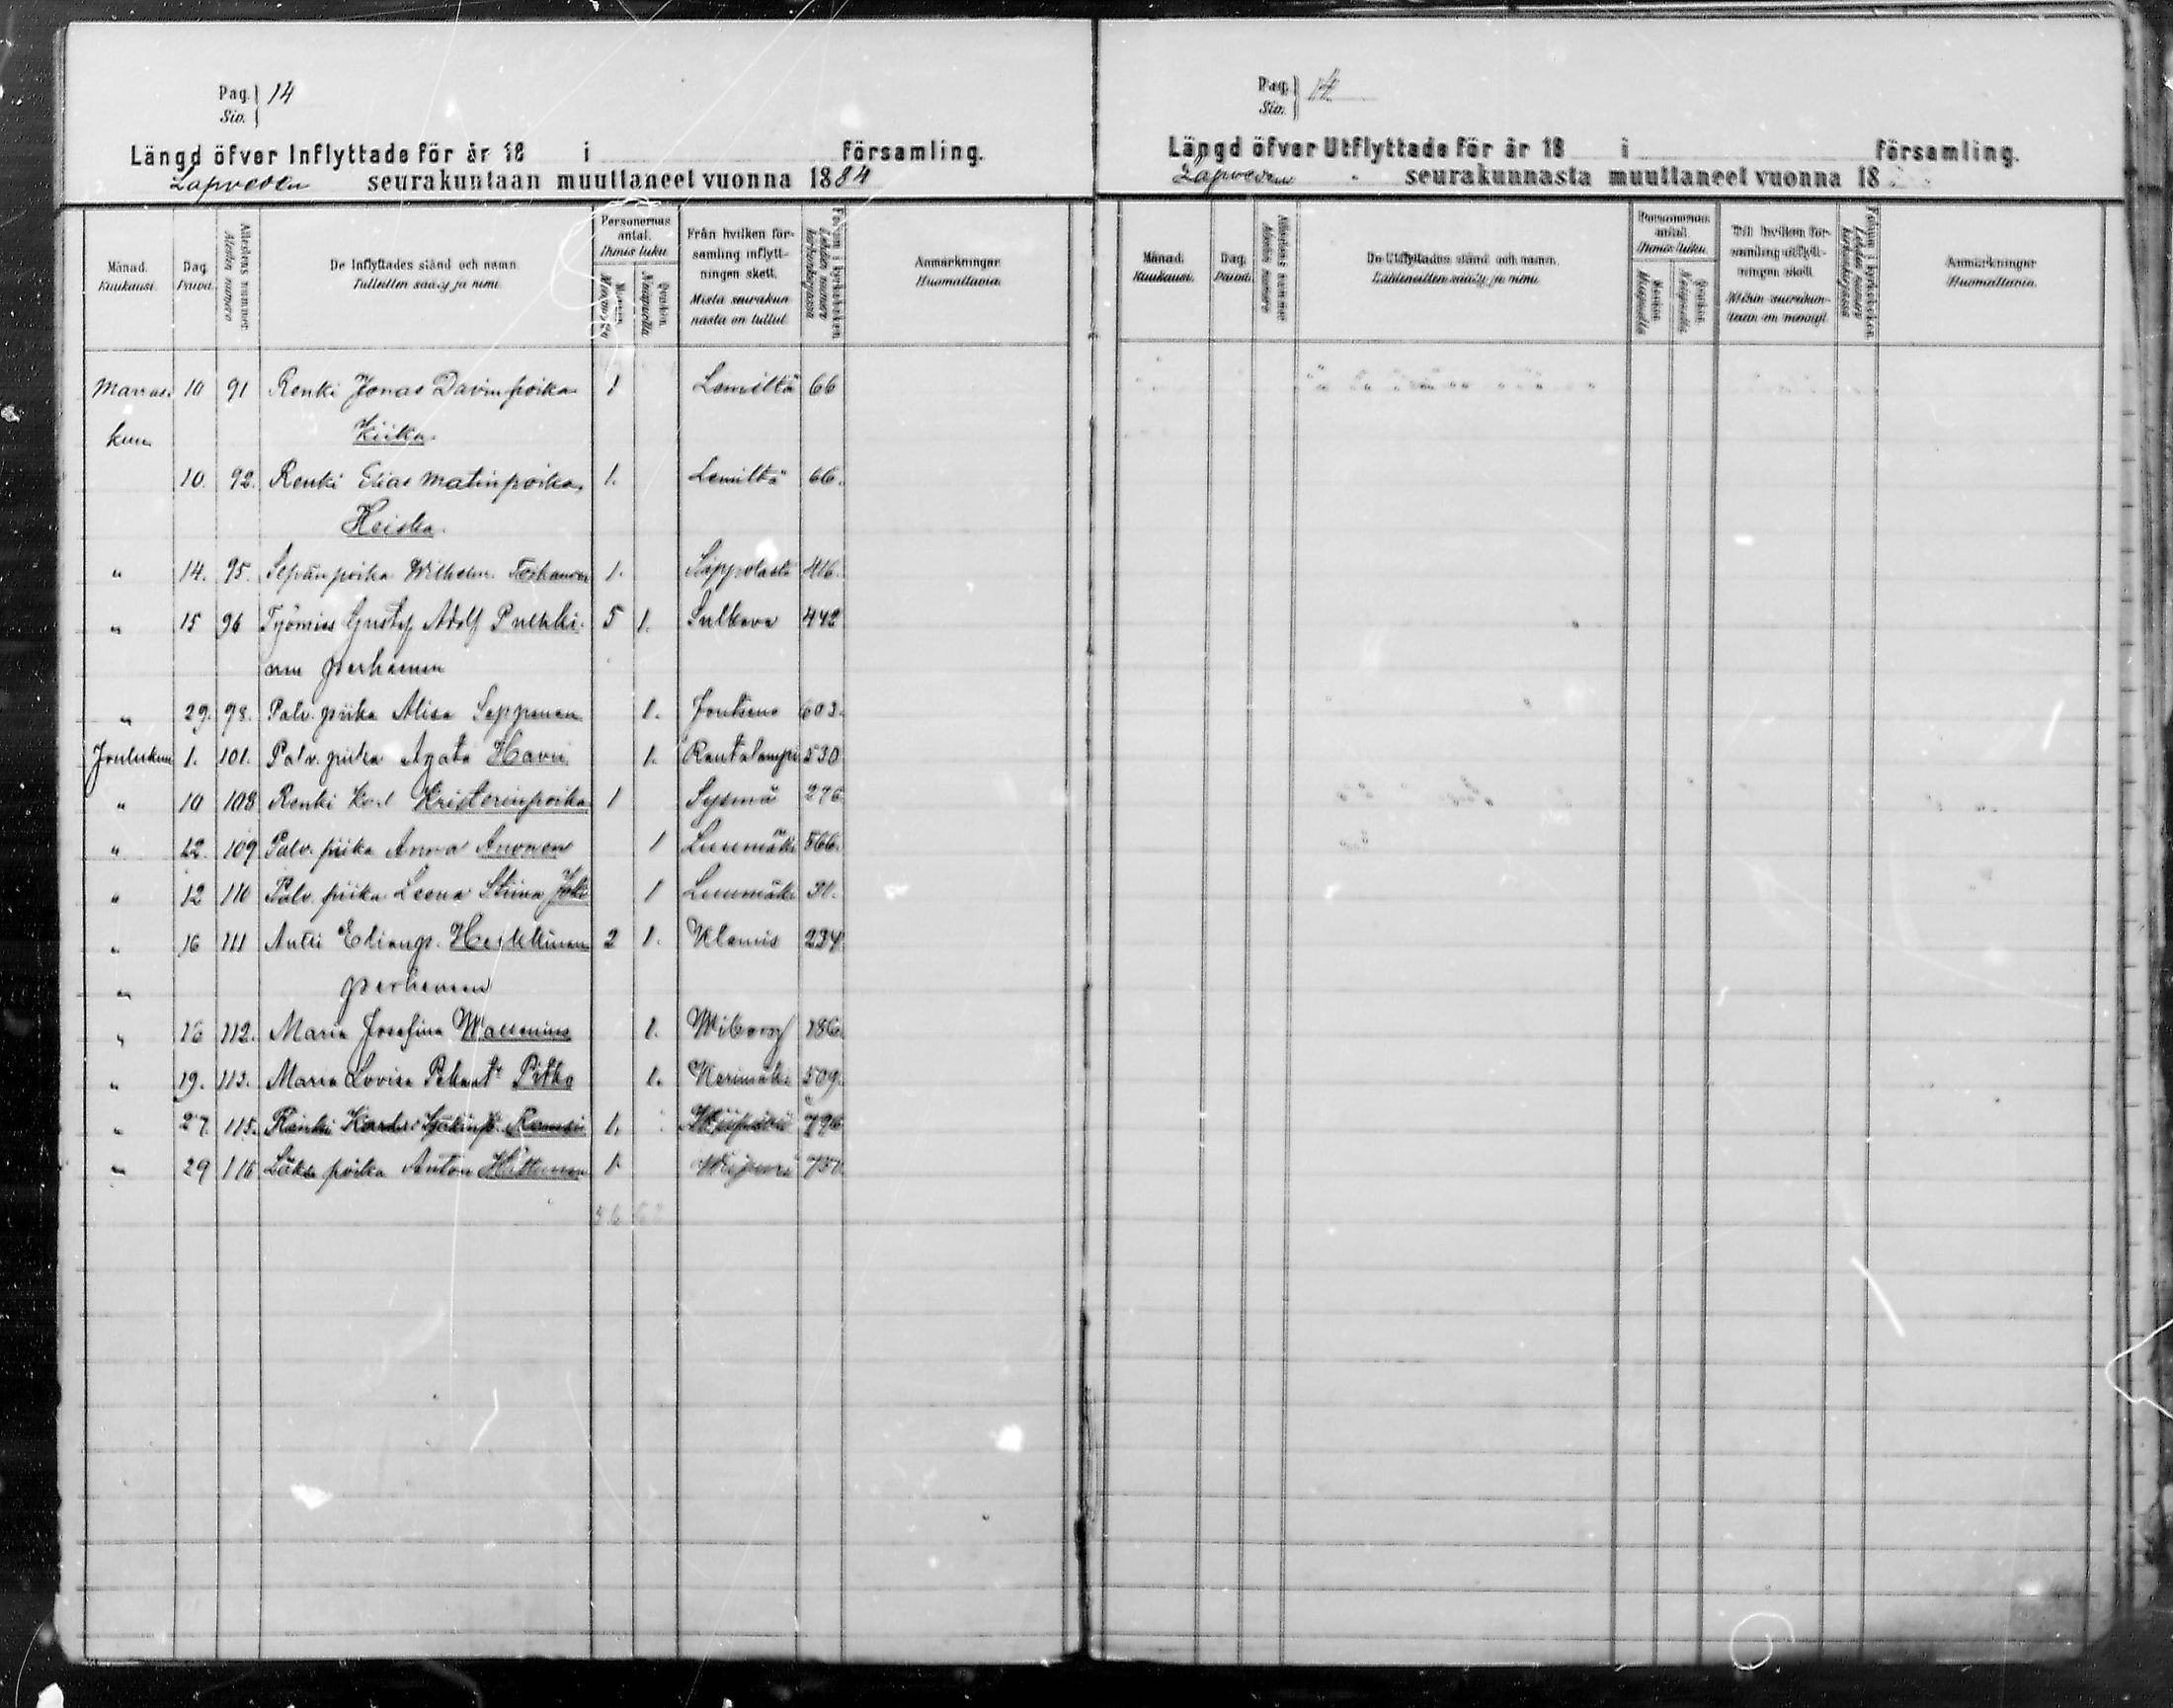 Pag. 14
Siv.
Längd öfver Inflyttade för år 18 i församling.
Lapveden seurakuntaan muuttaneet vuonna 1884
Månad. Kuukausi.
Dag. Päivä.
Attestens nummer. Alestin numero
De Inflyttades stånd och namn. Tulleitten sääty ja nimi.
Personernas antal. Ihmis luku.
Mankön. Miespuolia
Qvinkön. Naispuolia.
Från hvilken församling inflyttningen skett. Mistä seurakunnasta on tullut.
Anmärkningar. Huomattavia.
Marras. 10 91 Renki Jonas Davinpoika 1 Lemiltä 66
kuu Kiika.
10. 92. Renki Elias Matinpoika 1. Lemiltä 66.
Heiska.
" 14. 95. Sepänpoika Wilhelm 1. Sippolasta 416.
" 15 96 Työmies Gustaf Adolf Pulkki- 5 1. Sulkava 442
nen perheineen
" 29. 98. Palv. piika Alisa Seppänen 1. Joutseno 603.
Joulukuu 1. 101. Palv. piika Agata Havu 1. Rantalampi 530
" 10 108 Renki Karl Kristerinpoika 1 Sysmä 276
" 12. 109 Palv. piika Anna Anonen 1 Luumäki 566.
" 12 110 Palv. piika Leena Stiina 1 Luumäki 31.
" 16 111 Antti Eliasp. Heikkinen 2 1. Klemis 234
" perheineen
" 16 112. Maria Josefina Wallenius 1. Wiborg 186.
" 19. 113. Maria Lovisa Pitko 1. Kerimäki 509.
" 27. 115. Renki 1. Wiipuri 796
" 29 116 Anton Hittunen 1 Wiipuri 750.
Pag. 14
Siv.
Längd öfver Utflyttade för år 18 i församling.
Lapveden seurakunnasta muuttaneet vuonna 18
Månad. Kuukausi.
Dag. Päivä.
Attestens nummer. Alestin numero
De Utflyttades stånd och namn. Lähteneitten sääty ja nimi.
Personernas antal. Ihmis luku.
Till hvilken församling utflyttningen skett. Mihin seurakuntaan on mennyt.
Anmärkningar. Huomattavia.